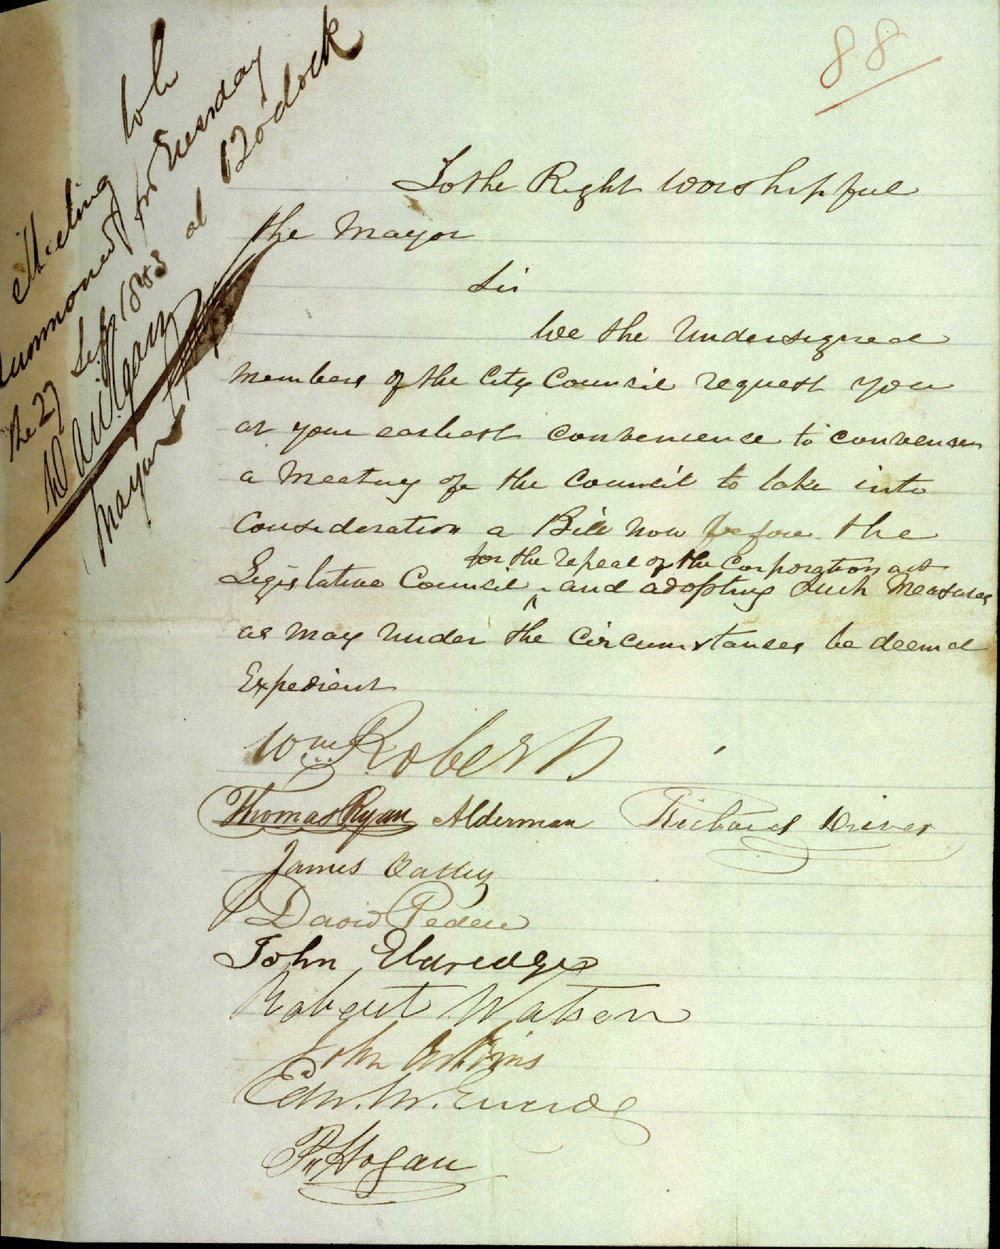 88
Meeting to be
summoned for Tuesday
the 27 Sept 1853 at 12 oclock
Mayor
To the Right Worshipful
the Mayor
Sir
We the Undersigned
Members of the City Council request you
at your earliest convenience to convene
a Meeting of the Council to take into
Consideration a Bill now before the
for the repeal of the Corporation act
Legislative Council ^ and adopting such Measures
as may under the Circumstances be deemed
Expedient
Wm Roberts
Thomas Ryan Alderman Richard Driver
James Oatley
David Peden
John Eldredge
Robert Watson
John
Edw.
P. Hogan